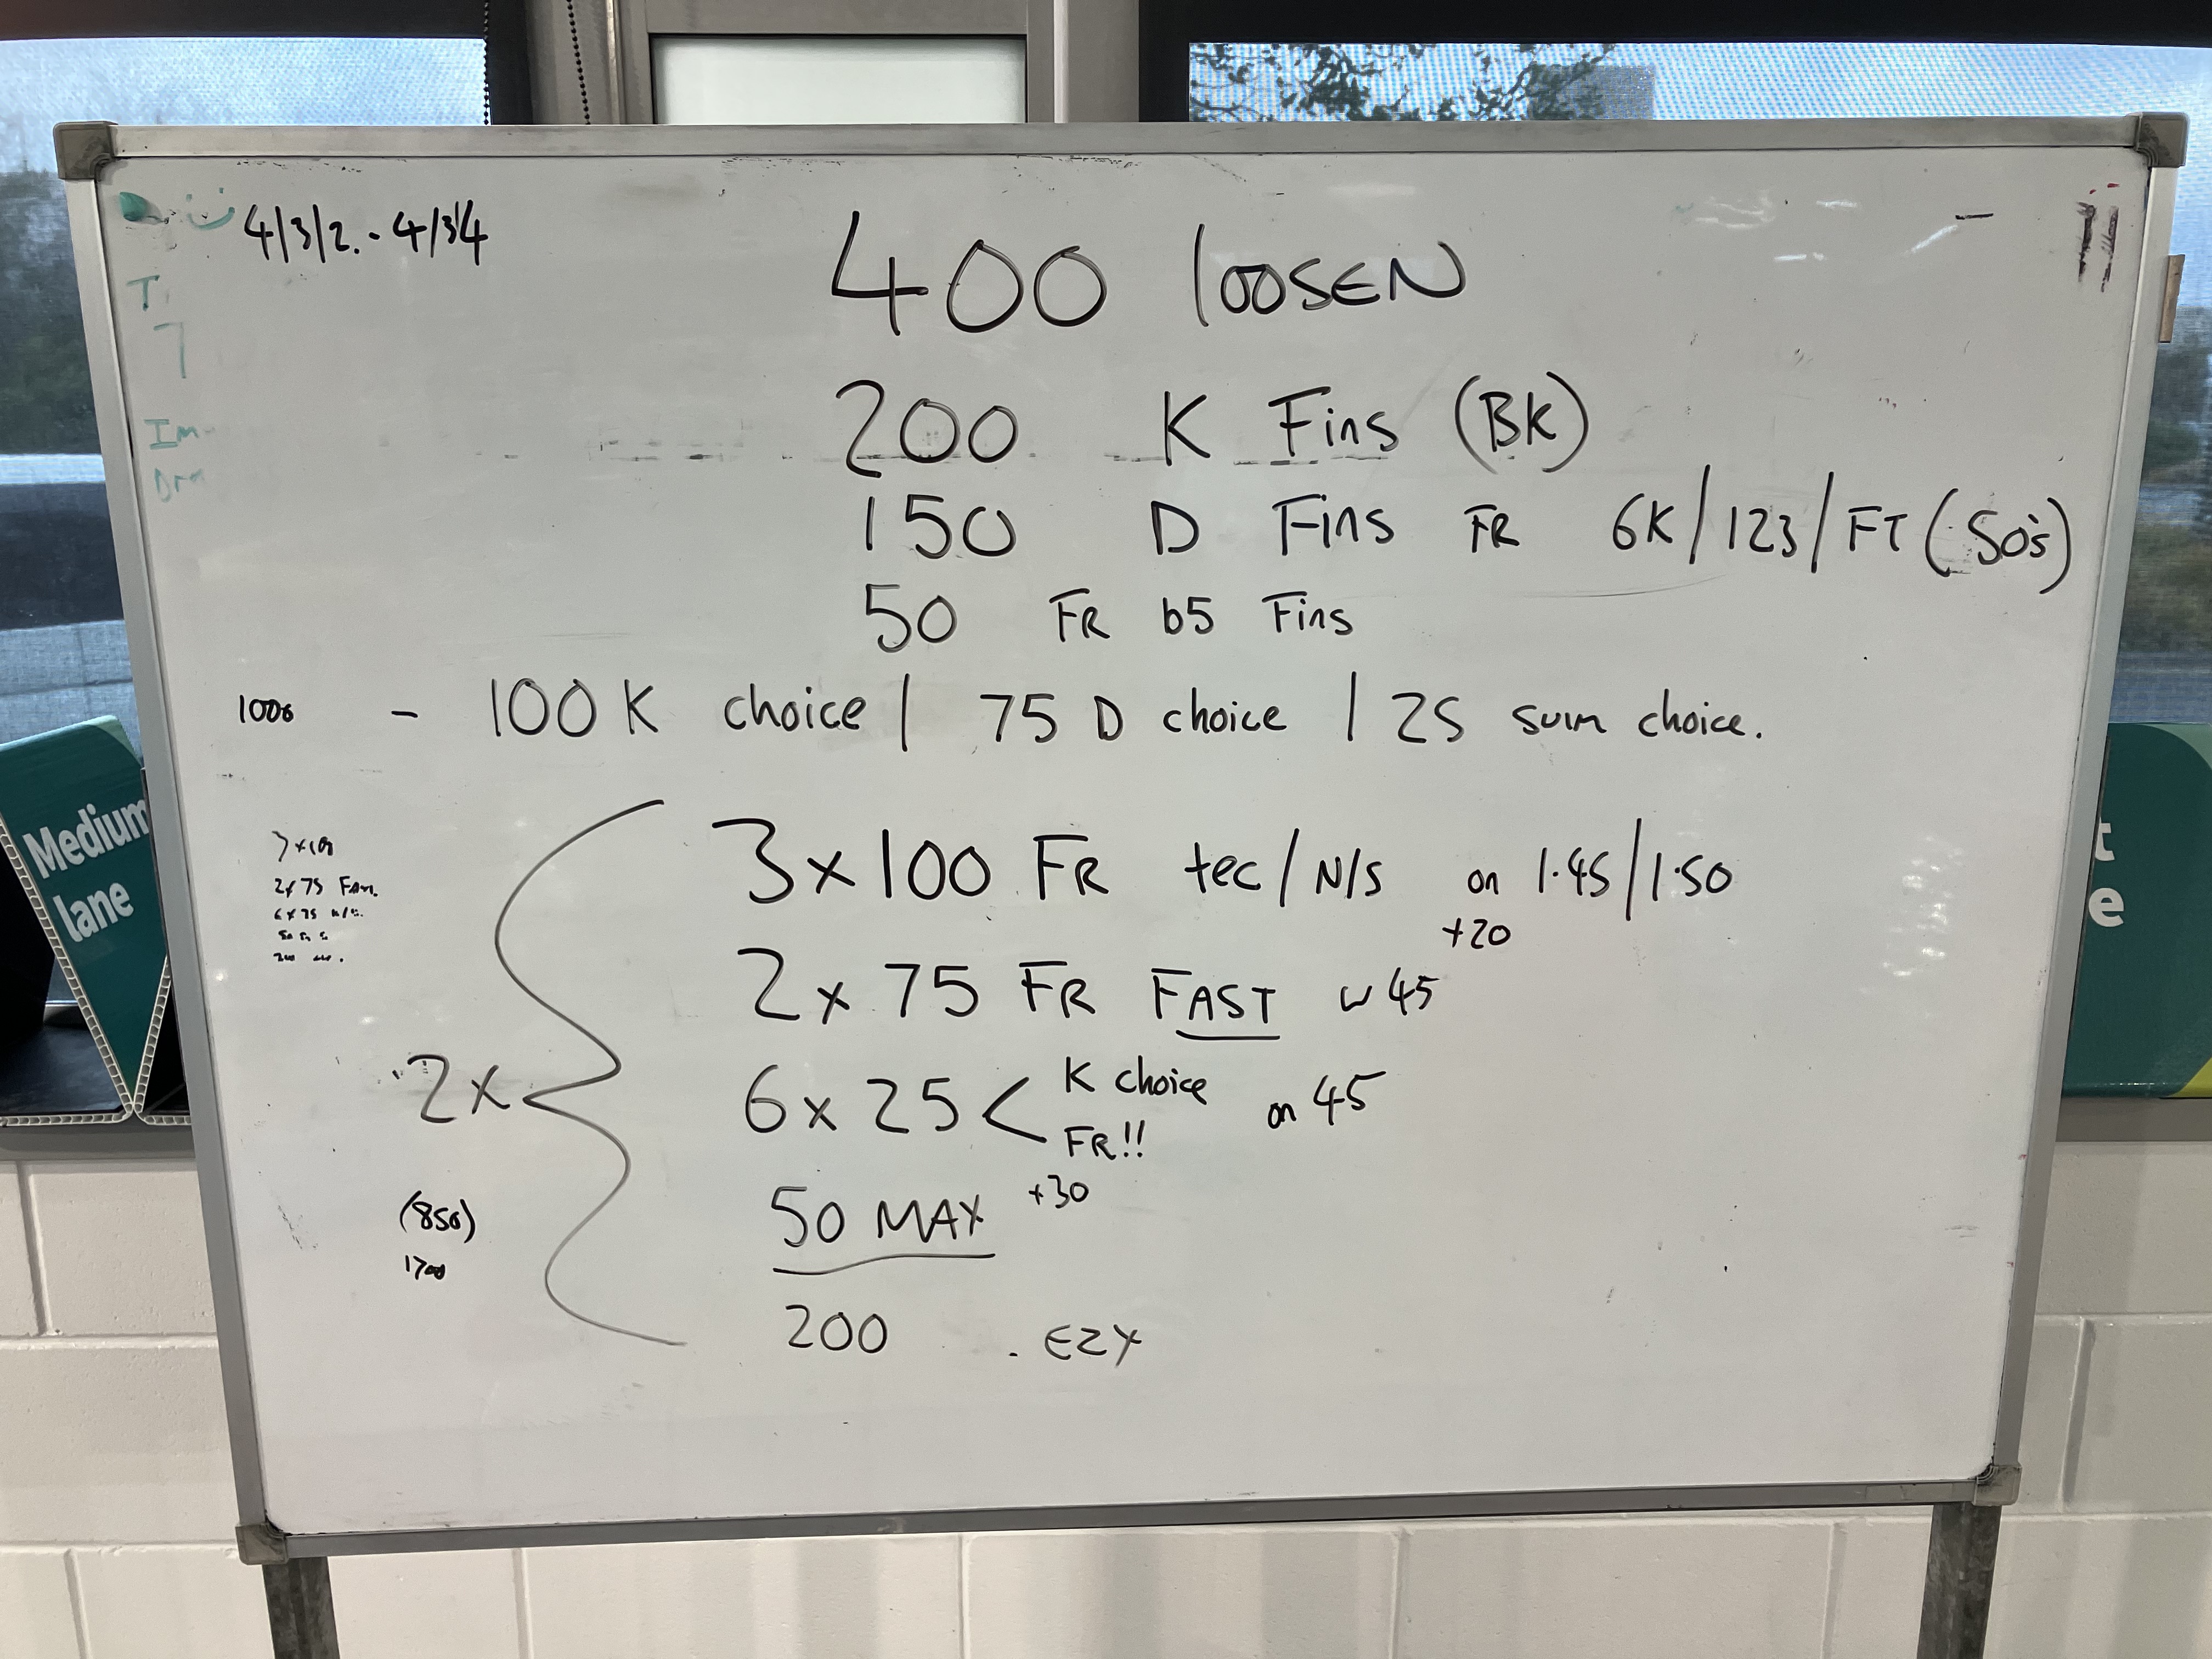 4/3/2. - 4/3/4
400 loosEN
200 K Fins (BK)
150 D Fins FR 6K/123/FT (50's)
50 FR b5 Fins
1000 - 100 K choice | 75 D choice | 25 swim choice.
3 x 100 FR tec/N/S on 1.45/1.50
+20
2 x 75 FR FAST w 45
2x
6 x 25 < K choice on 45
FR!!
+30
50 MAX
(850)
1700
200 . EZY
2x 75 Fam.
6 x 75
T
7
Im
Drn
Medium
lane
t
e